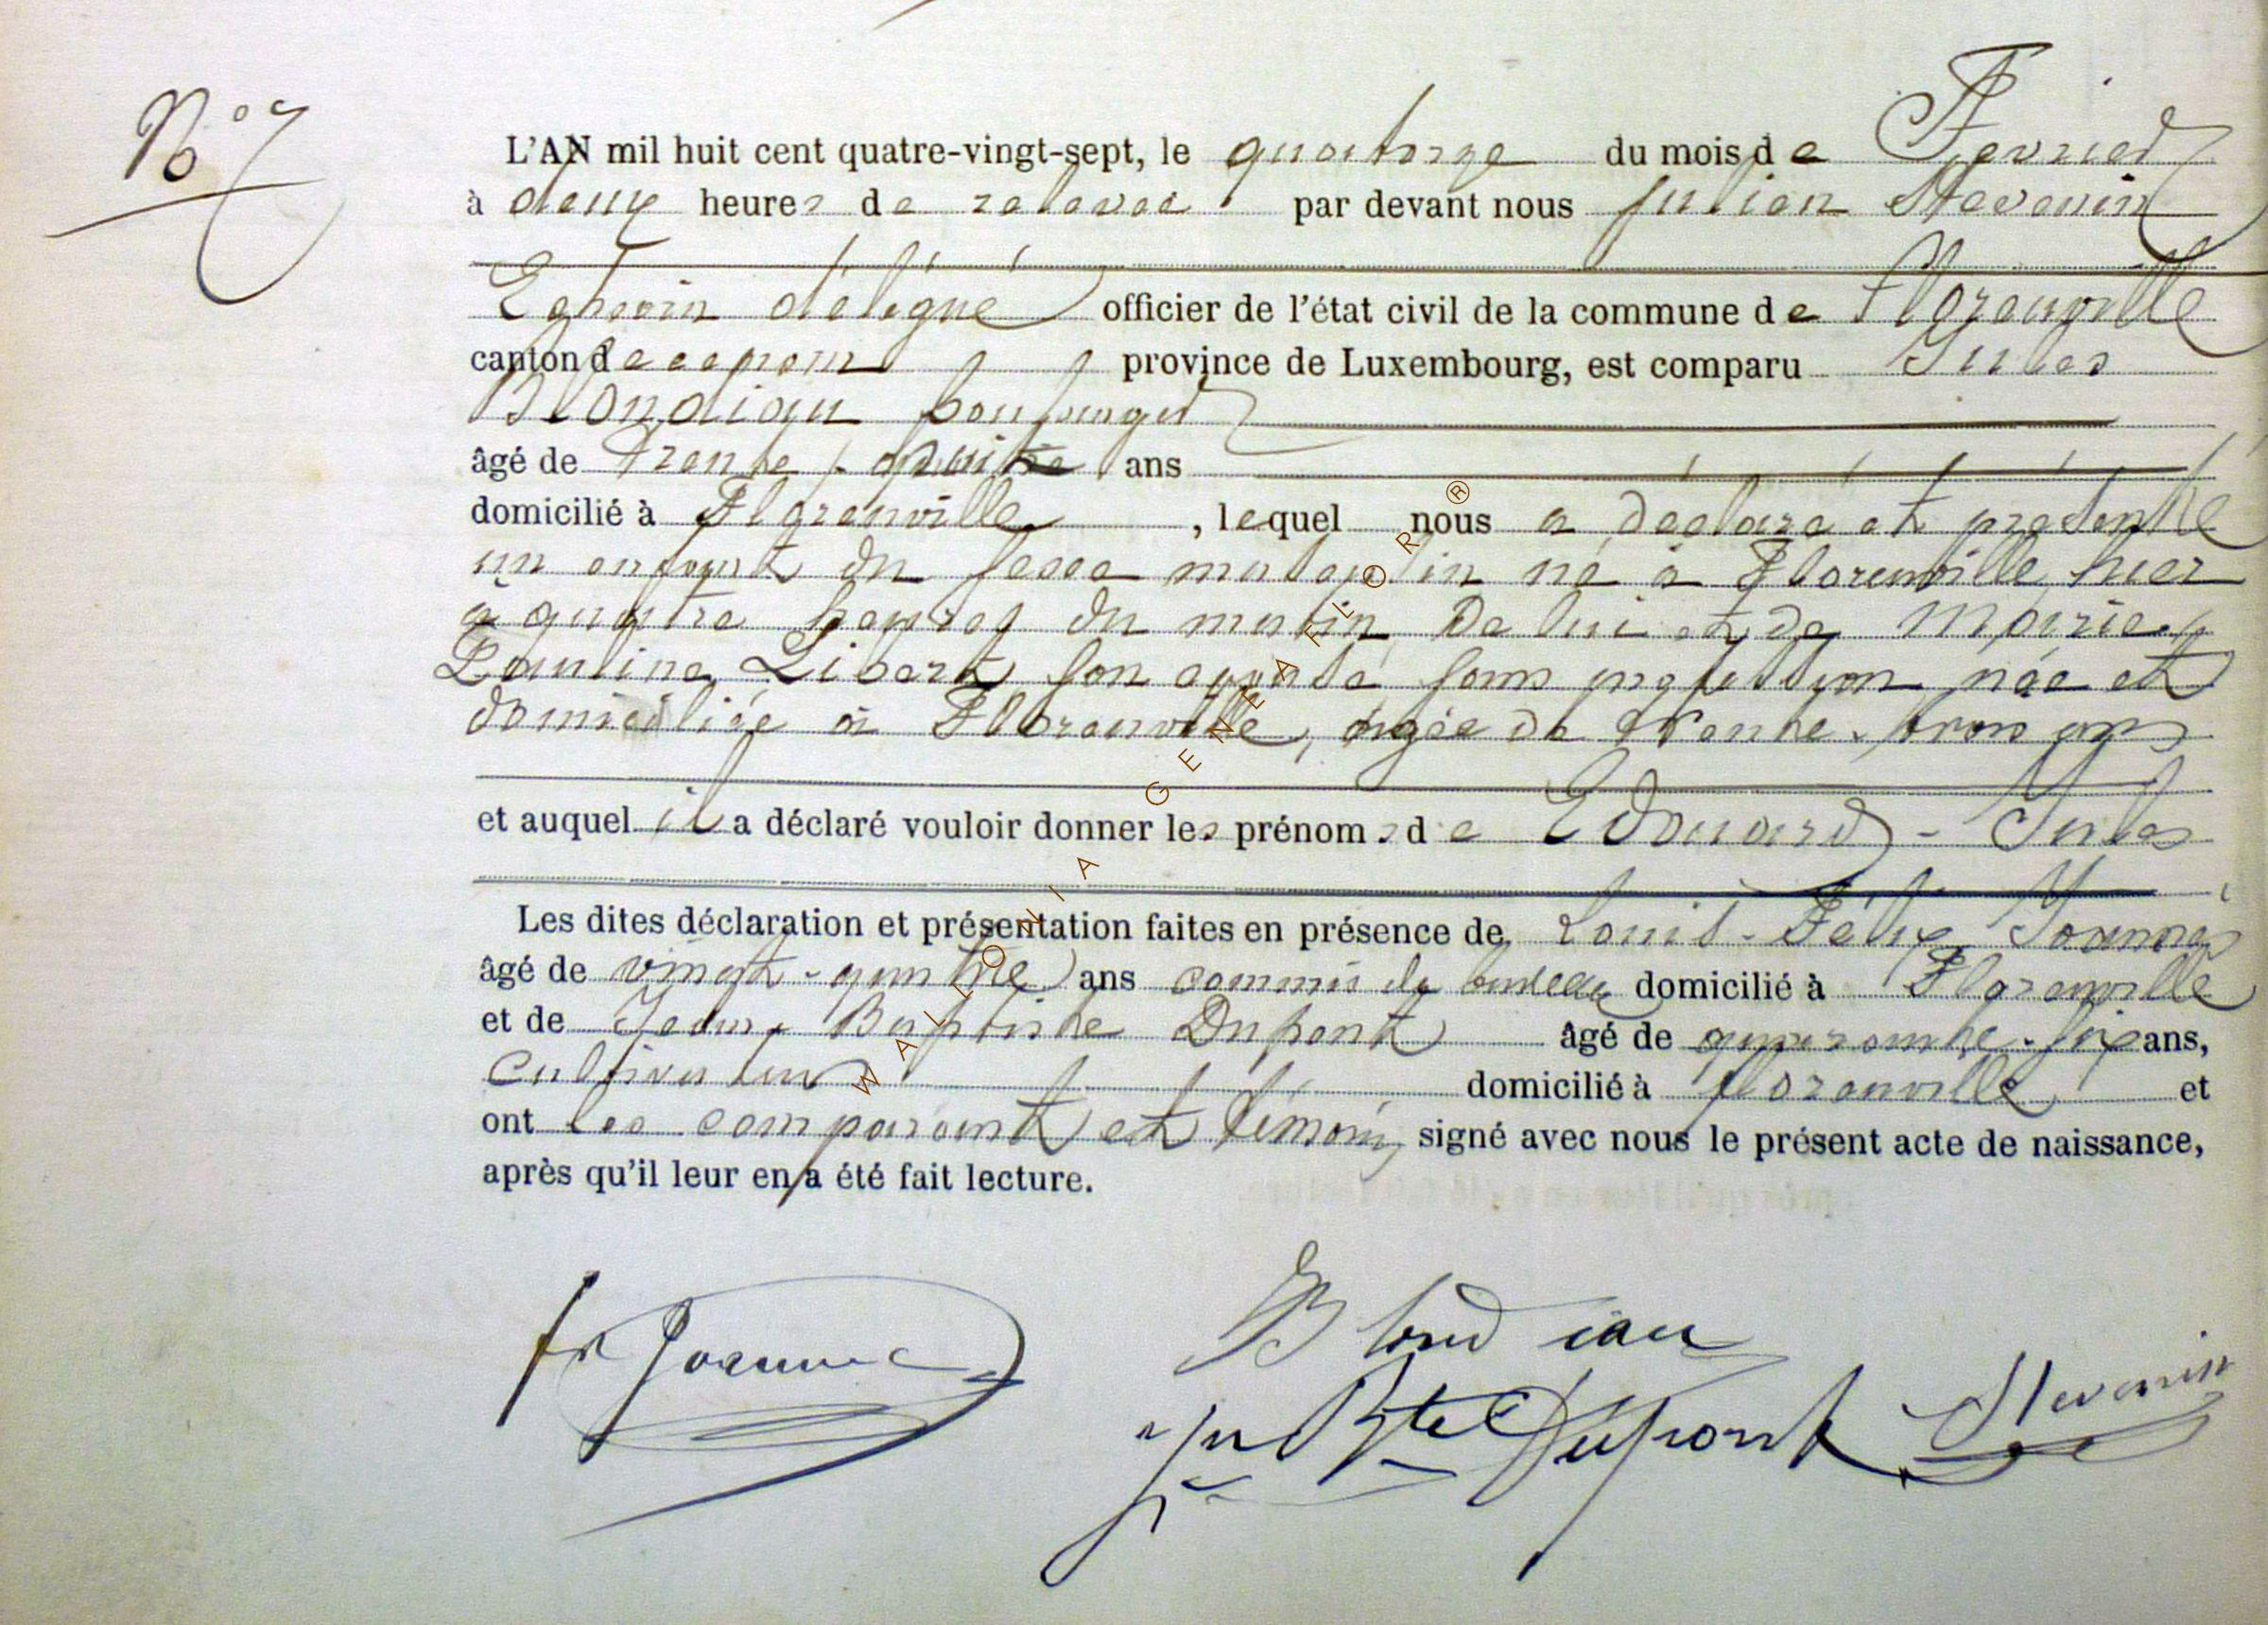 N° 7
L'AN mil huit cent quatre-vingt-sept, le quatorze du mois de Fevrier
à deux heures de relevée par devant nous Julien Stevenin
Echevin délégué officier de l'état civil de la commune de Florenville
canton province de Luxembourg, est comparu Jules
Blondiau boulanger
âgé de trente ans
domicilié à Florenville, lequel nous a déclaré et présenté
un enfant du sexe masculin né à Florenville hier
à quatre heures du matin, de lui et de Marie
Pauline Libert son épouse sans profession née et
domiciliée à Florenville, âgée de trente-trois ans
et auquel il a déclaré vouloir donner les prénoms de Edouard - Jules
Les dites déclaration et présentation faites en présence de Louis - Félix
âgé de vingt-quatre ans commis de bureau domicilié à Florenville
et de Jean-Baptiste Dupont âgé de quarante-six ans,
Cultivateur domicilié à Florenville et
ont les comparant et témoins signé avec nous le présent acte de naissance,
après qu'il leur en a été fait lecture.
Blondiau
Jn Bte Dupont Stevenin
WALLONIA GENEAFLOR ®